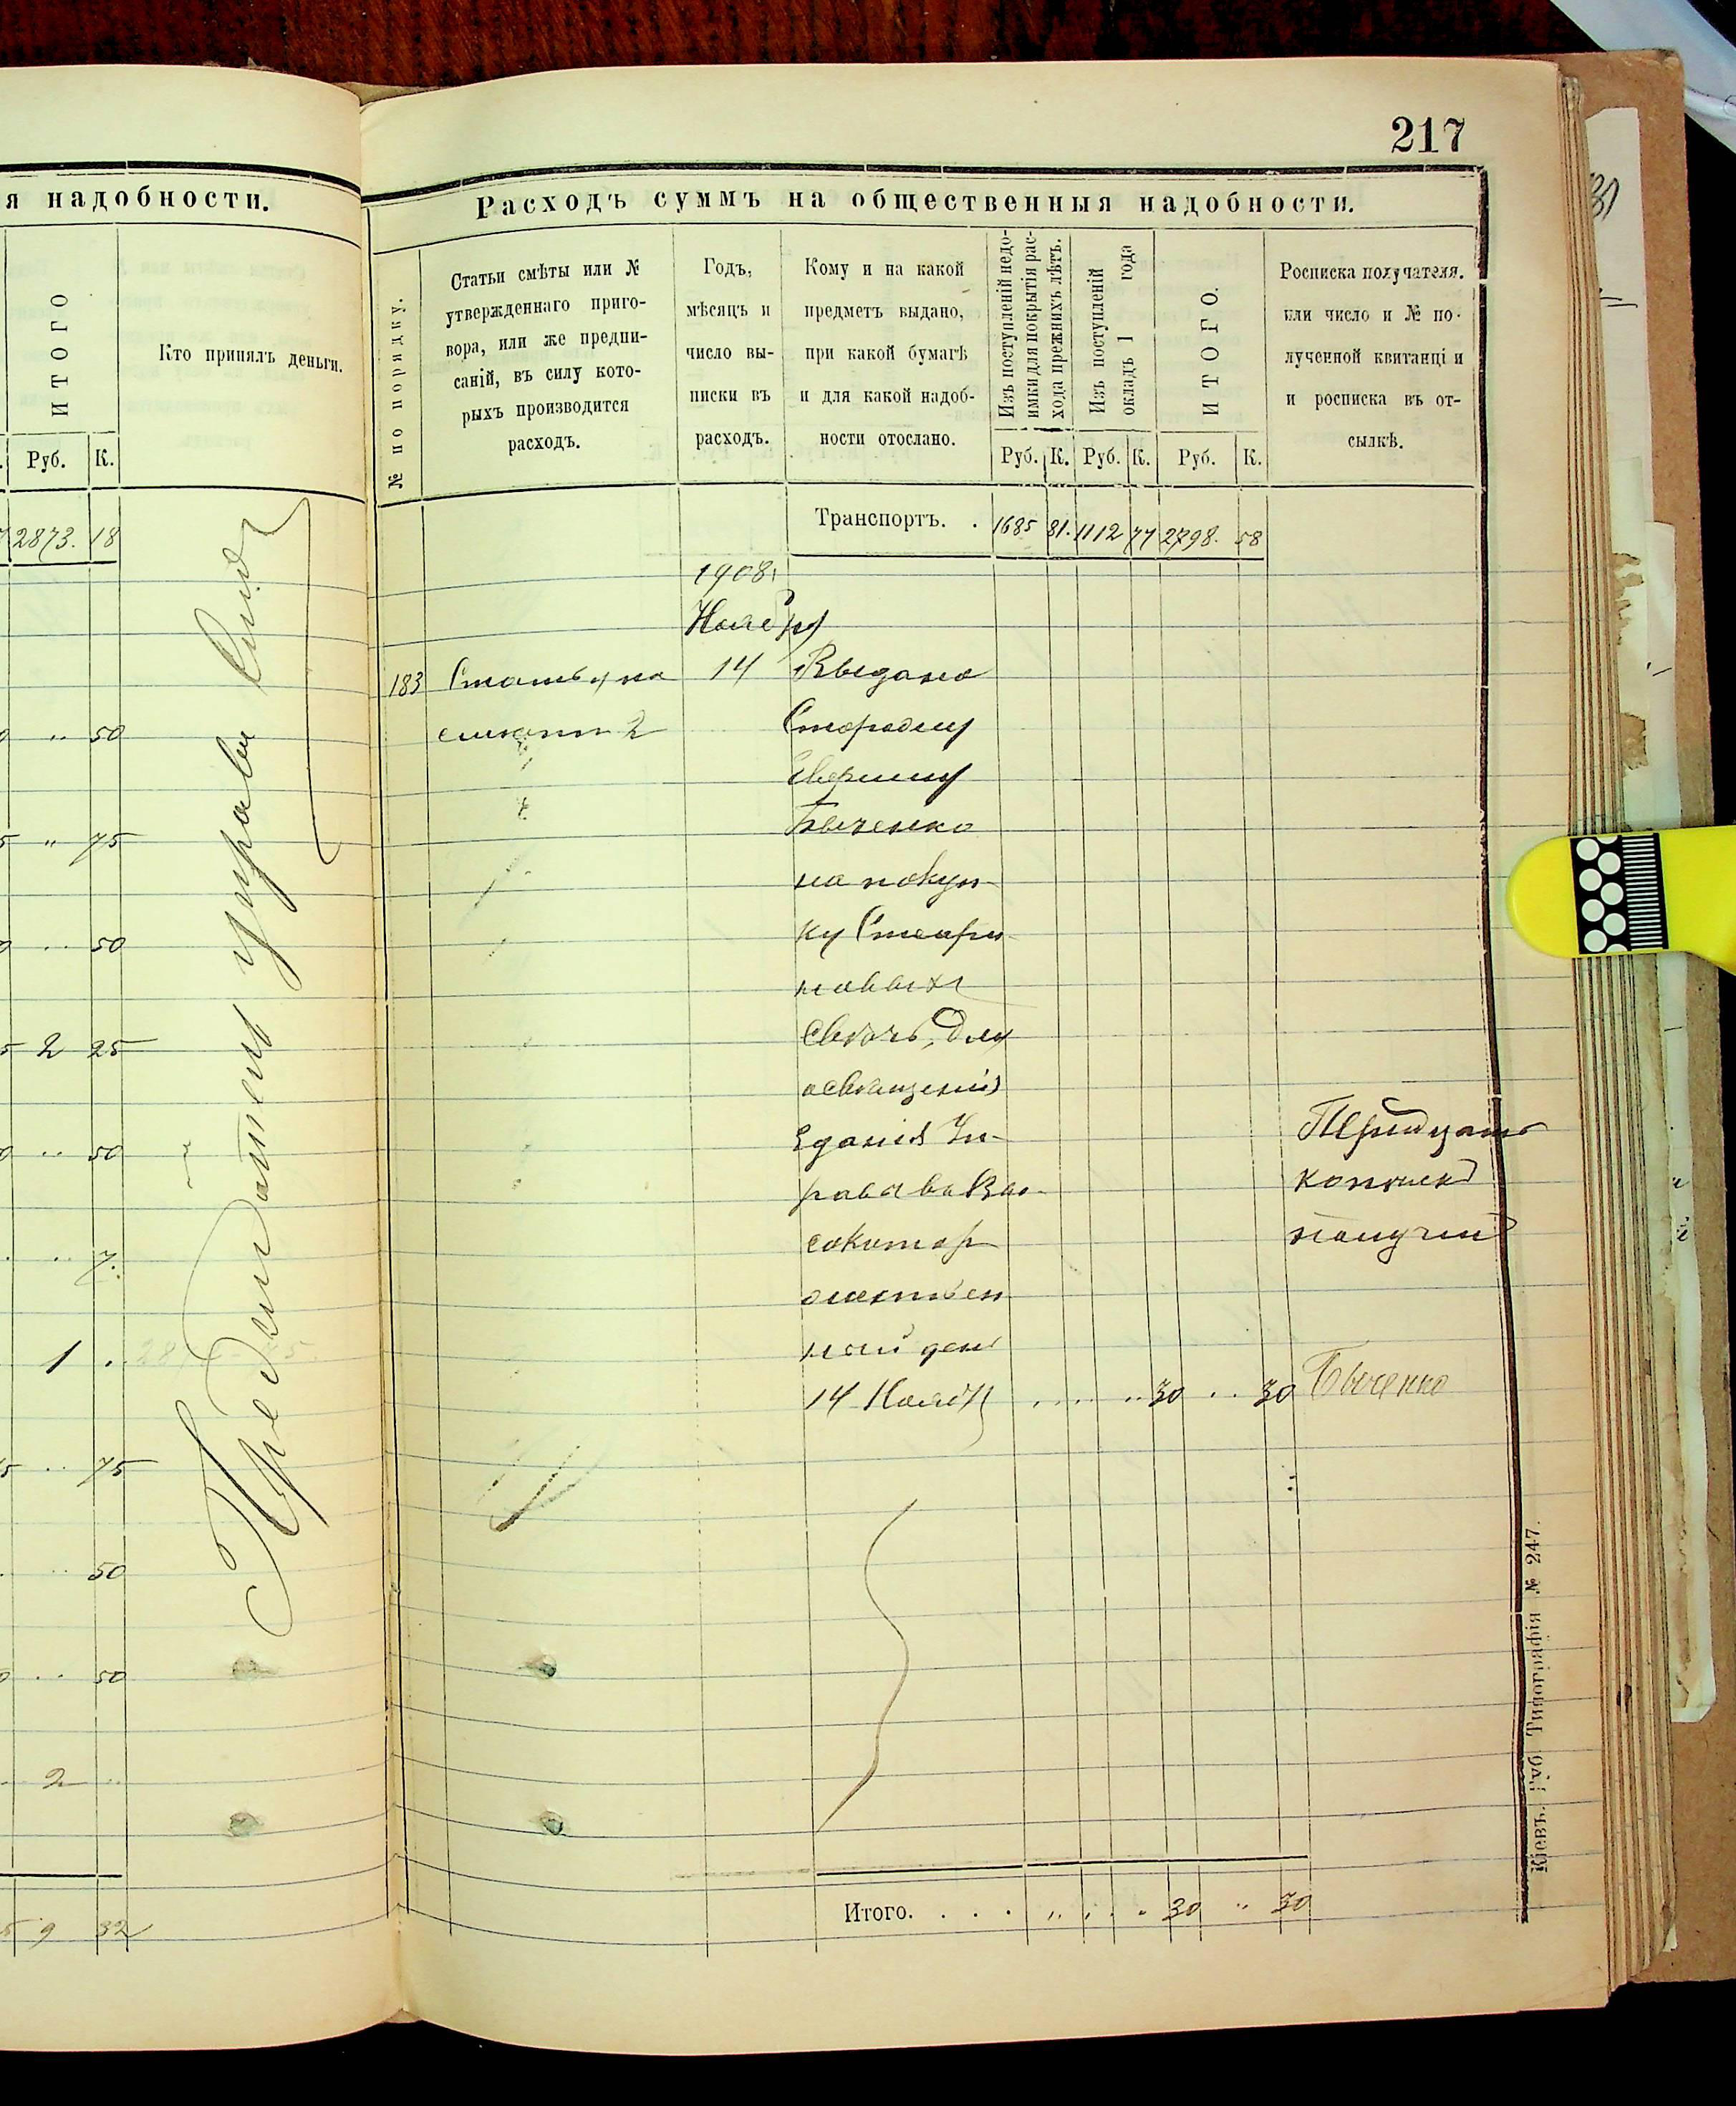 217
я надобности.
ИТОГО
Кто принялъ деньги.
Руб. К.
2873. 18
.. 50
.. 75
.. 50
2 25
.. 50
.. 7.
1 ..
.. 75
.. 50
.. 50
2 ..
9 32
Расходъ суммъ на общественныя надобности.
№ по порядку.
Статьи смѣты или №
утвержденнаго приго-
вора, или же предпи-
саній, въ силу кото-
рыхъ производится
расходъ.
Годъ,
мѣсяцъ и
число вы-
писки въ
расходъ.
Кому и на какой
предметъ выдано,
при какой бумагѣ
и для какой надоб-
ности отослано.
Изъ поступленій недо-
имки для покрытія рас-
хода прежнихъ лѣтъ.
Изъ поступленій
окладъ 1 года
ИТОГО.
Росписка получателя.
или число и № по-
лученной квитанціи
и росписка въ от-
сылкѣ.
Руб. К. Руб. К. Руб. К.
Транспортъ. . 1685 81. 1112 77 2798. 58
1908.
Ноября
183 Статья по 14 Выдано
смѣтѣ 2 Сторожу
Быченко
на покуп-
ку Стеари
новыхъ
свѣчъ, для
освѣщенія
зданія Уп-
равы въ Вы-
сокотор
жествен
ный день
14 Ноября .. 30 .. 30
Тридцать
копѣекъ
получилъ
Быченко
Итого. . . . .. . . . 30 .. 30
Кіевъ. Губ. Типографія № 247.